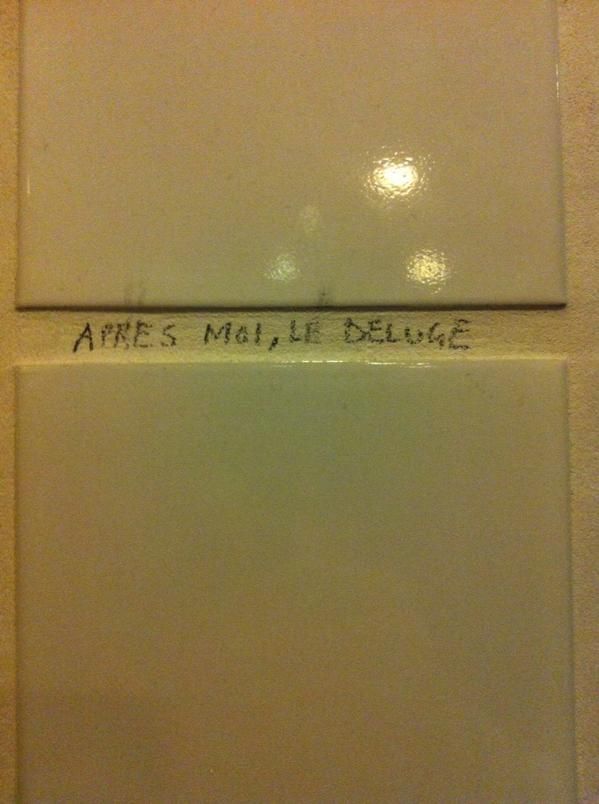 APRES MOI, LE DELUGE